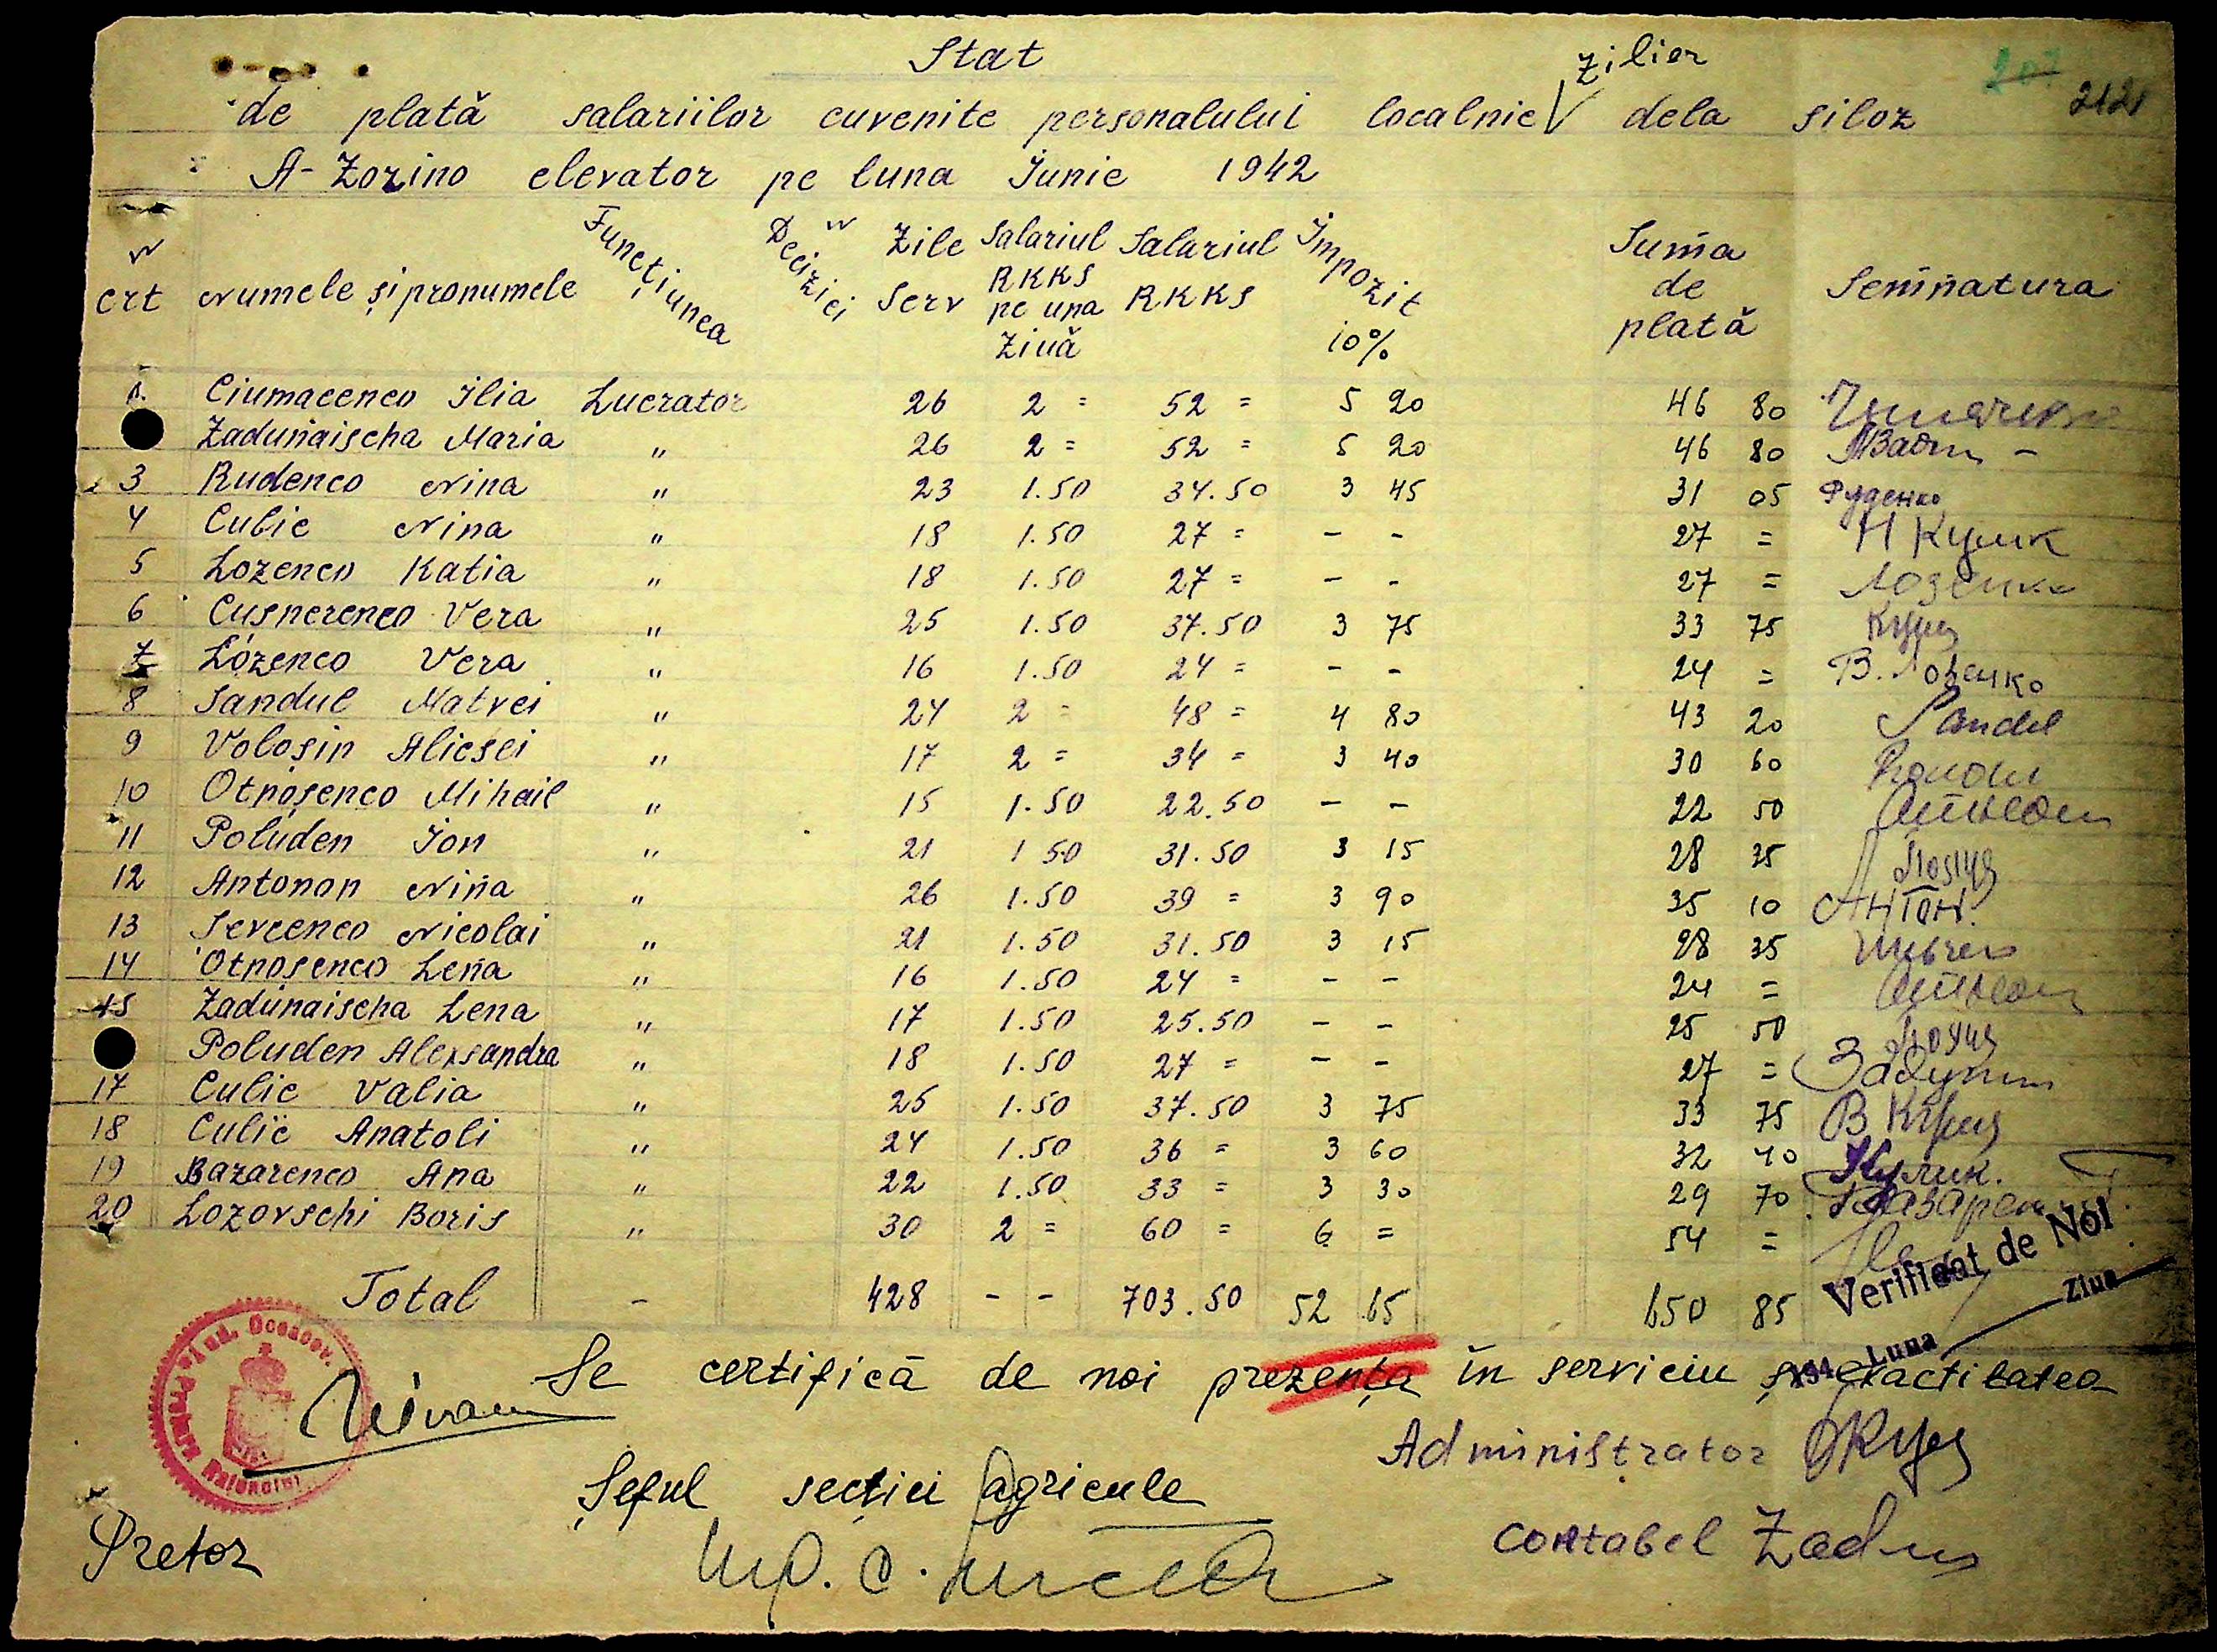 Stat
zilier
de plată salariilor cuvenite personalului localnic V dela siloz
2121
A-Zorino elevator pe luna Junie 1942
N crt Numele și pronumele Funcțiunea N Deciziei Zile Serv Salariul RKKS pe una Ziuă Salariul RKKS Impozit 10% Suma de plată Semnatura
1. Ciumacenco Ilia Lucrator 26 2 = 52 = 5 20 46 80
Zadunaischa Maria " 26 2 = 52 = 5 20 46 80
3 Rudenco Nina " 23 1.50 34.50 3 45 31 05 Руденко
4 Culic Nina " 18 1.50 27 = - - 27 = Н Кулик
5 Lozenco Katia " 18 1.50 27 = - - 27 = Лозенко
6 Cusnerenco Vera " 25 1.50 37.50 3 75 33 75
7 Lozenco Vera " 16 1.50 24 = - - 24 = В. Лозенко
8 Sandul Matvei " 24 2 = 48 = 4 80 43 20 Sandul
9 Voloșin Alicsei " 17 2 = 34 = 3 40 30 60
10 Otnoșenco Mihail " 15 1.50 22.50 - - 22 50
11 Poluden Jon " 21 1 50 31.50 3 15 28 35
12 Antonon Nina " 26 1.50 39 = 3 90 35 10 Антон.
13 Sevcenco Nicolai " 21 1.50 31.50 3 15 28 35
14 Otnosenco Lena " 16 1.50 24 = - - 24 =
15 Zadunaischa Lena " 17 1.50 25.50 - - 25 50
Poluden Alexsandra " 18 1.50 27 = - - 27 =
17 Culic Valia " 25 1.50 37.50 3 75 33 75
18 Culic Anatoli " 24 1.50 36 = 3 60 32 40 Кулик.
19 Bazarenco Ana " 22 1.50 33 = 3 30 29 70
20 Lozovschi Boris " 30 2 = 60 = 6 = 54 =
Total - 428 - - 703.50 52 65 650 85
Verificat de Noi
194 Luna Ziua
Se certifică de noi prezența în serviciu și exactitatea
Administrator
Șeful secției Agricule
Contabel Zadun
Pretor